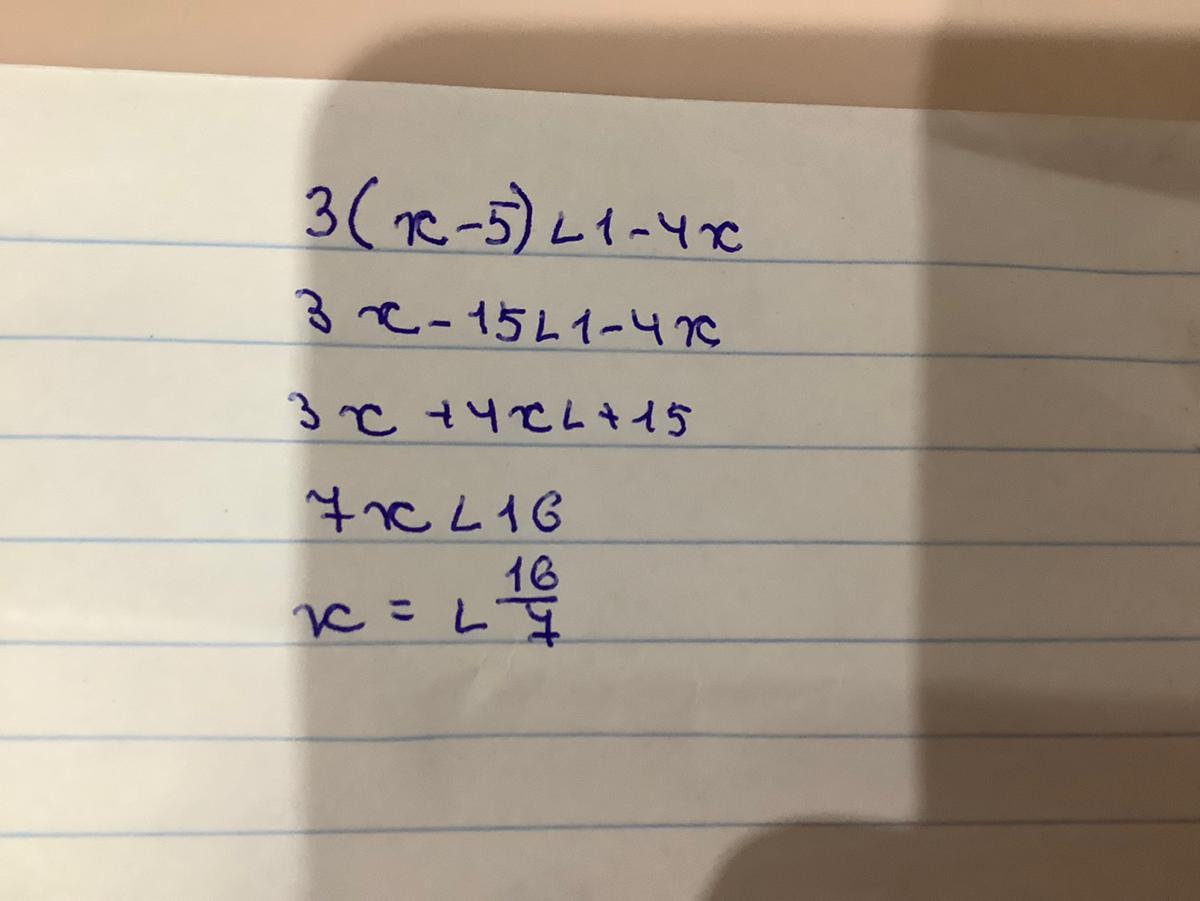 3(x-5)<1-4x
3x-15<1-4x
3x+4x<+15
7x<16
x=<16/7